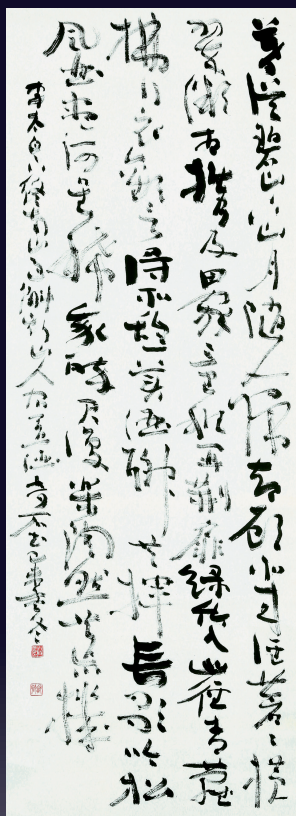 暮從碧山下山月隨人歸卻顧所來徑蒼蒼橫
翠微相攜及田家童稚開荊扉綠竹入幽徑青蘿
拂行衣歡言得所憩美酒聊共揮長歌吟松
風曲盡河星稀我醉君復樂陶然共忘機
李太白下終南山過斛斯山人宿置酒